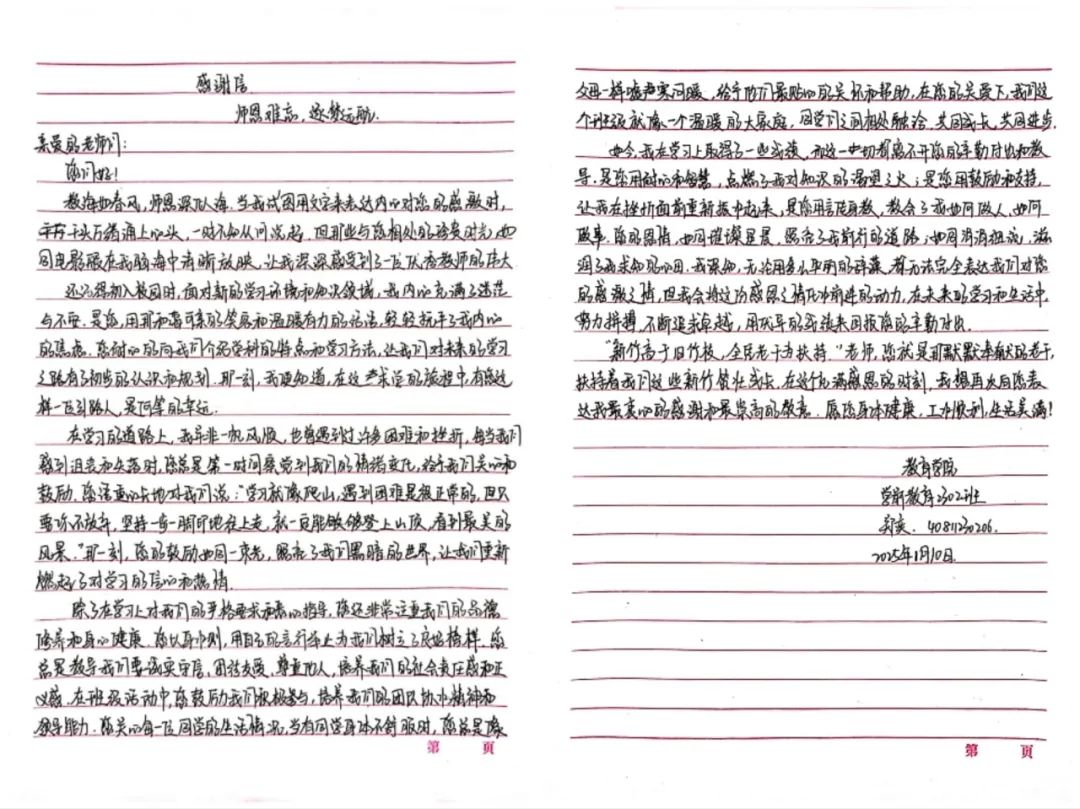 感谢信
师恩难忘，逐梦远航.
亲爱的老师们：
您们好！
教诲如春风，师恩深似海.当我试图用文字来表达内心对您的感激时，
千头万绪涌上心头，一时不知从何说起.但那些与您相处的珍贵时光，如
同电影般在我脑海中清晰放映，让我深深感受到了一位优秀教师的伟大
还记得初入校园时，面对新的学习环境和知识领域，我内心充满了迷茫
与不安.是您，用那和蔼可亲的笑容和温暖有力的话语，轻轻抚平了我内心
的焦虑.您耐心的向我们介绍学科的特点和学习方法，让我们对未来的学习
之路有了初步的认识和规划.那一刻，我便知道，在这求学的旅程中，有您这
样一位引路人，是何等的幸运.
在学习的道路上，我并非一帆风顺，也曾遇到过许多困难和挫折，每当我们
感到沮丧和失落时，您总是第一时间察觉到我们的情绪变化，给予我们关心和
鼓励.您语重心长地对我们说："学习就像爬山，遇到困难是很正常的，但只
要你不放弃，坚持一步一脚印地往上走，就一定能够登上山顶，看到最美的
风景."那一刻，您的鼓励如同一束光，照亮了我们黑暗的世界，让我们重新
燃起了对学习的信心和热情.
除了在学习上对我们的严格要求和悉心指导，您还非常注重我们的品德
修养和身心健康.您以身作则，用自己的言行举止为我们树立了良好榜样.您
总是教导我们要诚实守信，团结友爱，尊重他人，培养我们的社会责任感和正
义感.在班级活动中，您鼓励我们积极参与，培养我们的团队协作精神和
领导能力.您关心每一位同学的生活情况，当有同学身体不舒服时，您总是像
第 页
父母一样嘘寒问暖，给予他们最贴心的关怀和帮助，在您的关爱下，我们这
个班级就像一个温暖的大家庭，同学们之间相处融洽，共同成长，共同进步.
如今，我在学习上取得了一些成绩，而这一切都离不开您的辛勤付出和教
导.是您用耐心和智慧，点燃了我对知识的渴望之火；是您用鼓励和支持，
让我在挫折面前重新振作起来，是您用言传身教，教会了我如何做人，如何
做事.您的恩情，如同璀璨星辰，照亮了我前行的道路；如同涓涓细流，滋
润了我求知的心田.我深知，无论用多么华丽的辞藻，都无法完全表达我们对您
的感激之情，但我会将这份感恩之情化作前进的动力，在未来的学习和生活中，
努力拼搏，不断追求卓越，用优异的成绩来回报您的辛勤付出.
"新竹高于旧竹枝，全凭老干为扶持."老师，您就是那默默奉献的老干，
扶持着我们这些新竹茁壮成长.在这个充满感恩的时刻，我想再次向您表
达我最衷心的感谢和最崇高的敬意.愿您身体健康，工作顺利，生活美满！
教育学院
学前教育2302班
40811230206.
2025年1月10日.
第 页